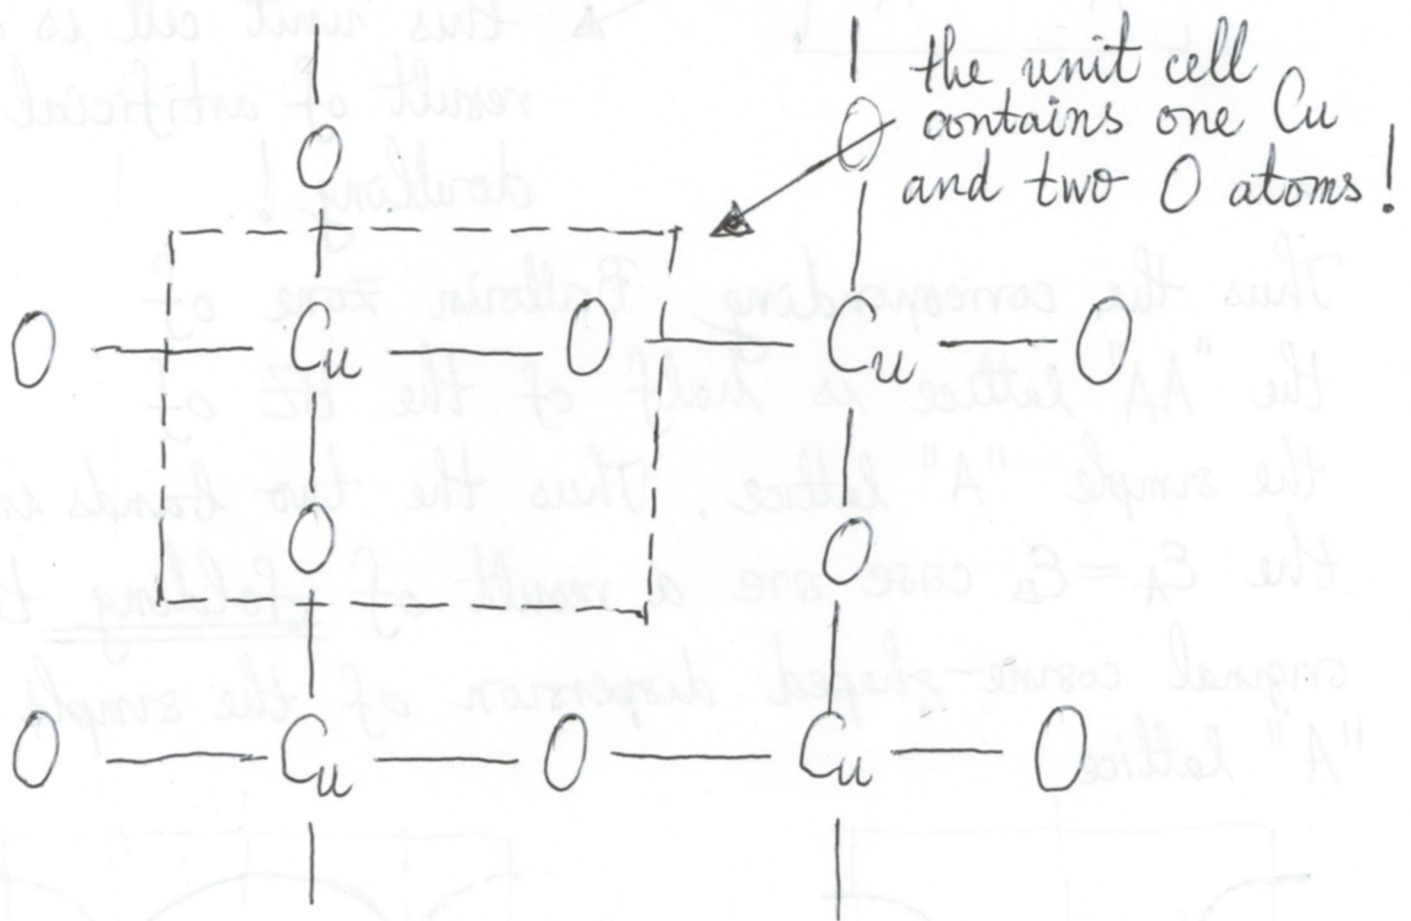 the unit cell
contains one Cu
and two O atoms!
O O
O Cu O Cu O
O O
O Cu O Cu O